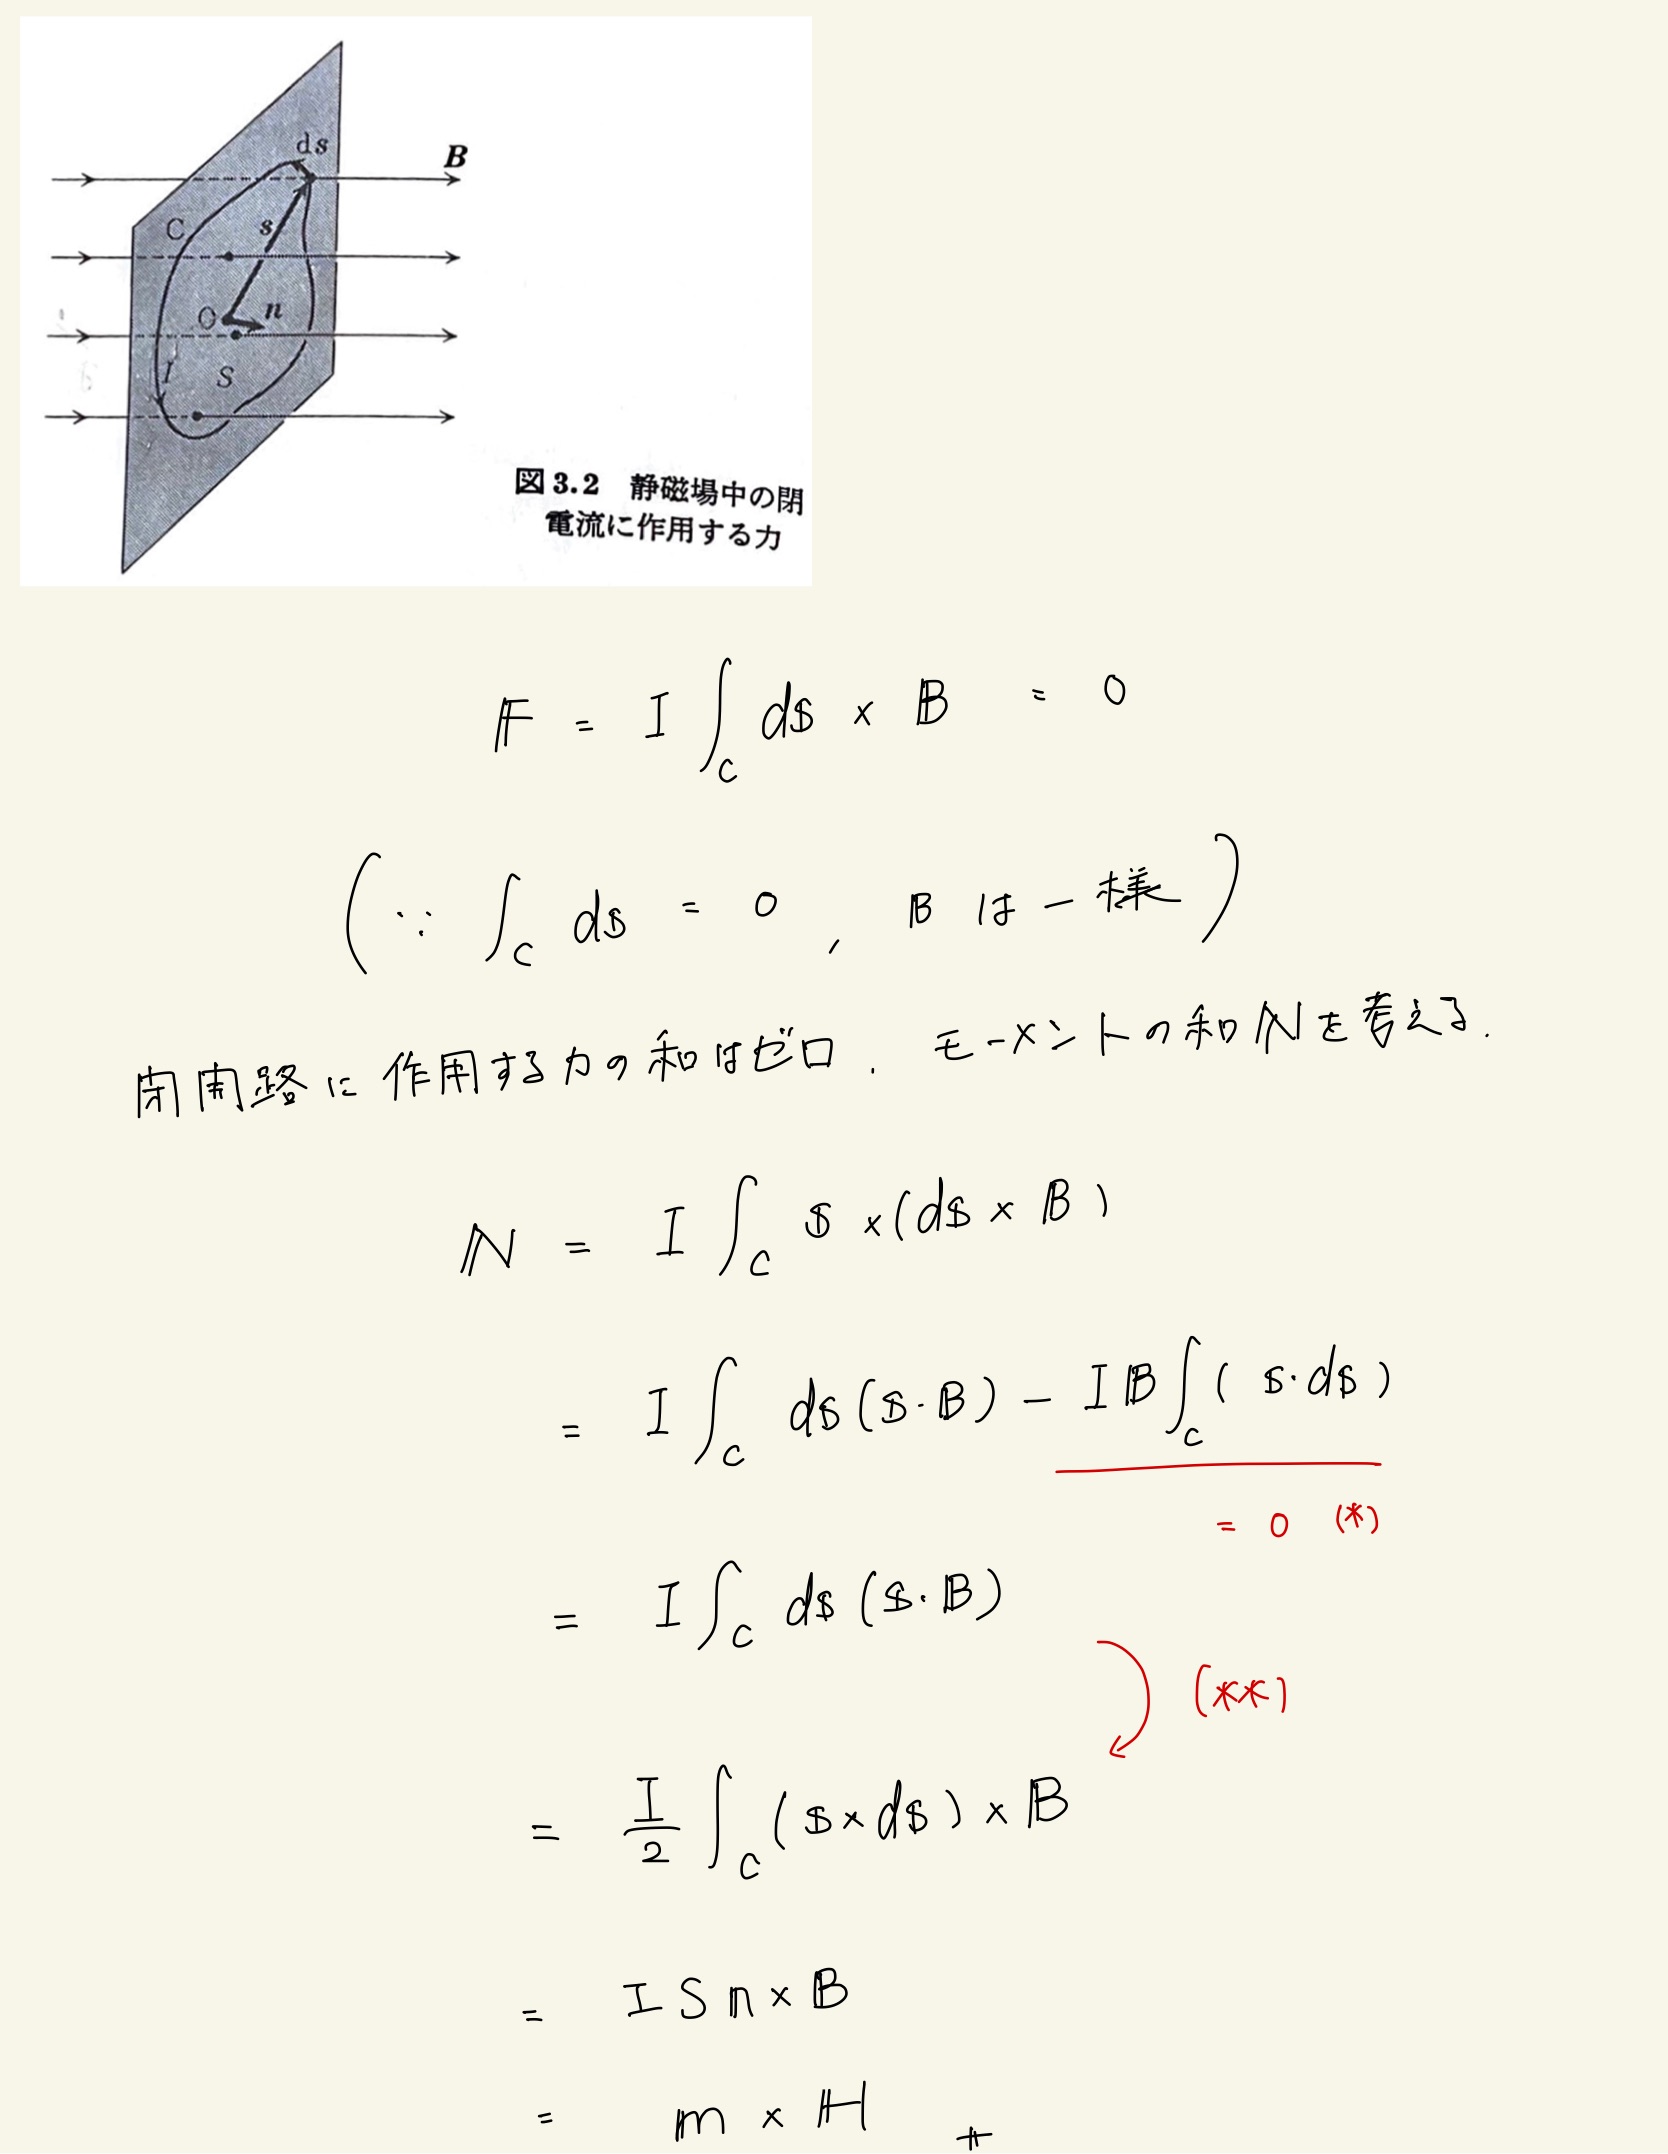 ds
B
C
s
O
n
I
S
図3.2 静磁場中の閉
電流に作用する力
F = I ∫_C ds × B = 0
(∵ ∫_C ds = 0 , B は一様)
閉回路に作用する力の和はゼロ. モーメントの和Nを考える.
N = I ∫_C s ×(ds × B)
= I ∫_C ds(s・B) - I B ∫_C (s・ds)
= 0 (*)
= I ∫_C ds (s・B)
(**)
= I/2 ∫_C (s×ds) × B
= I S n × B
= m × H